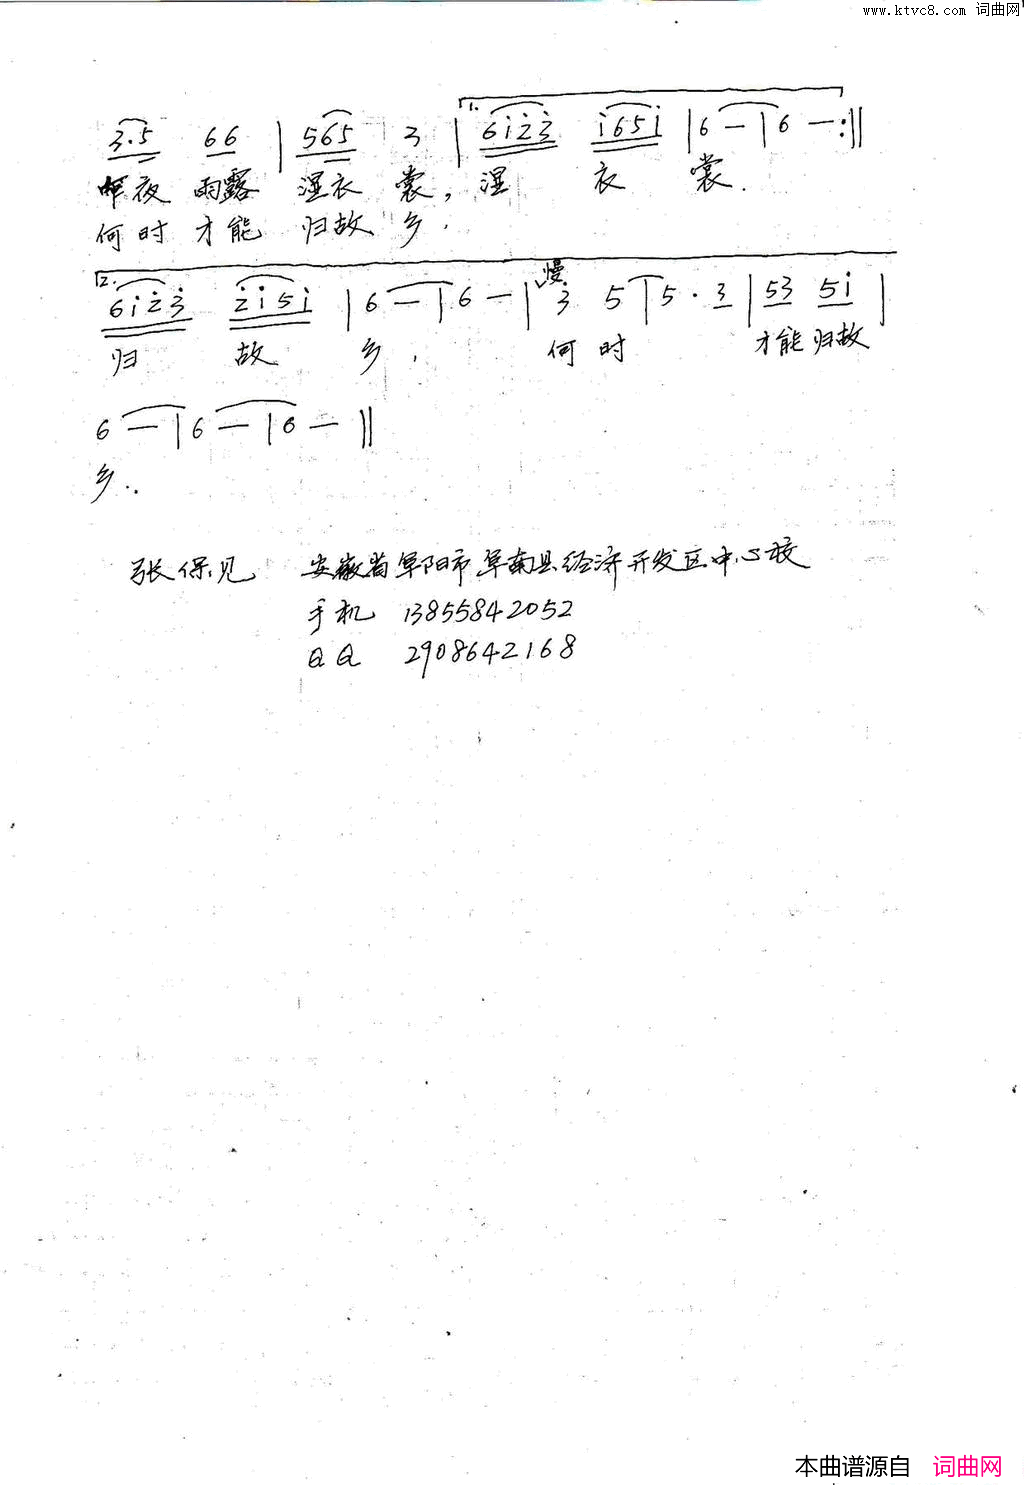 www.ktvc8.com 词曲网
3.5 66 | 565 3 | 1. 6i23 i65i | 6 — | 6 — :||
昨夜 雨露 湿衣 裳, 湿 衣 裳.
何时 才能 归故 乡.
2. 6i23 2i5i | 6 — | 6 — | 慢 3 5 | 5 . 3 | 53 5i |
归 故 乡. 何时 才能归故
6 — | 6 — | 6 — ||
乡..
张保见 安徽省阜阳市阜南县经济开发区中心校
手机 13855842052
QQ 2908642168
本曲谱源自 词曲网